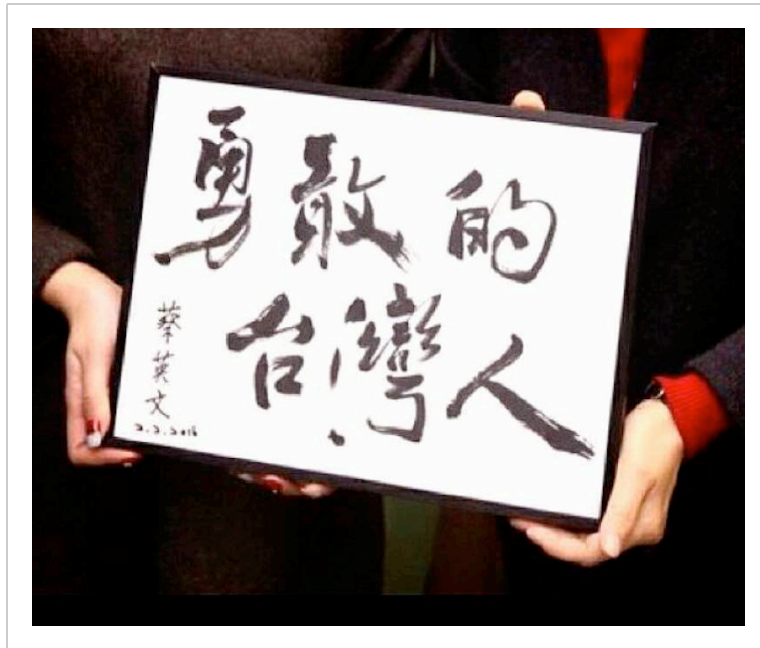 勇敢的
台灣人
蔡英文
2.2.2016